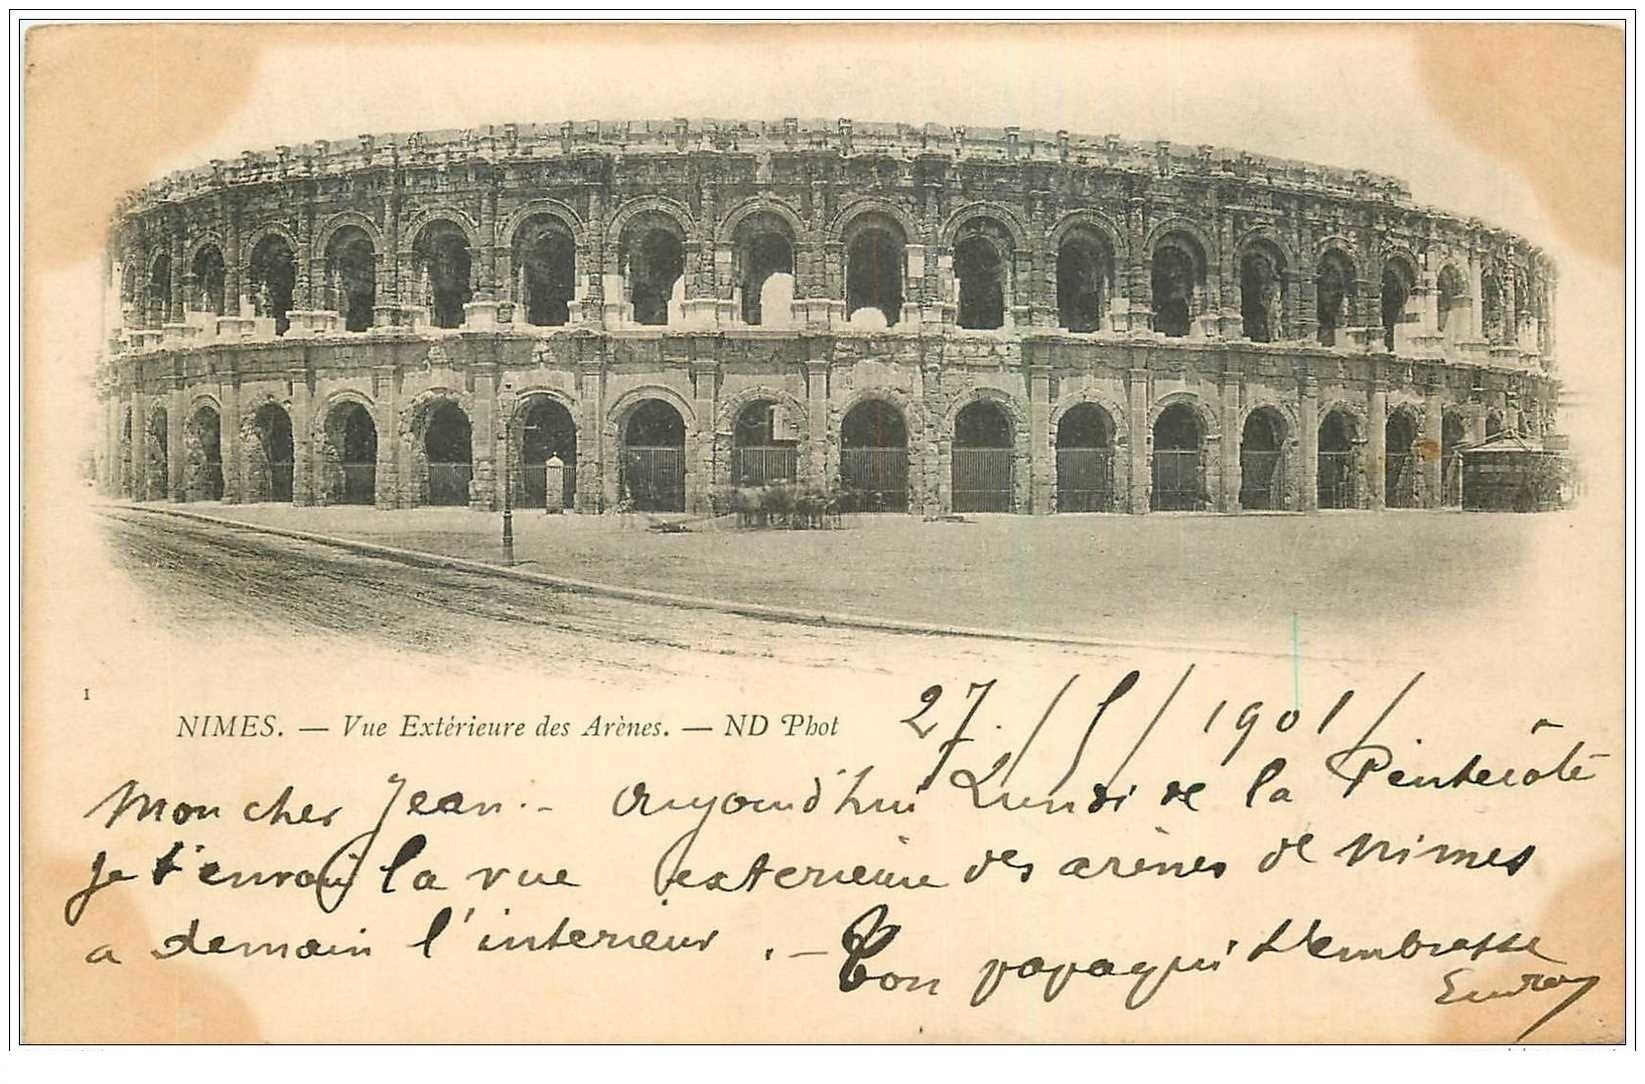 1
NIMES. — Vue Extérieure des Arènes. — ND Phot
27/5/1901/
Mon cher Jean. – Aujourd'hui Lundi de la Pentecôte
je t'envoie la vue exterieure des arènes de Nimes
a demain l'interieur. – Ton papa qui t'embrasse